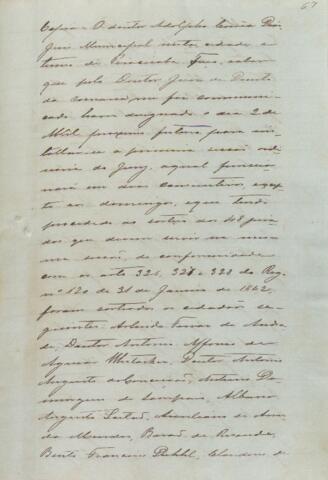 67
Copia O doutor Adolpho Corrêa Dias
Juiz Municipal nesta cidade e
termo de Piracicaba Faço saber
que pelo Doutor Juiz de Direito
da comarca me foi communi-
cado haver designado o dia 2 de
Abril proximo futuro para ins-
tallar-se a primeira sessão ordi-
naria do Jury, a qual funccio-
nará em dias consecutivos, excep-
to ao domingo, e que tendo
procedido ao sorteio dos 48 jura-
dos que devem servir na mes-
ma sessão, de conformidade
com os arts 326, 327 e 328 do Reg.
nº 120 de 31 de Janeiro de 1842,
foram sorteados os cidadãos se-
guintes: de Andra-
de, Doutor Antonio Affonso de
Aguiar Whitacker, Doutor Antonio
Augusto da Conceição, Antonio Do-
mingues de Sampaio, Albano
Augusto Leitão, Aureliano de Arru-
da Mendes, Barão de Rezende,
Bento Francisco , Claudino de